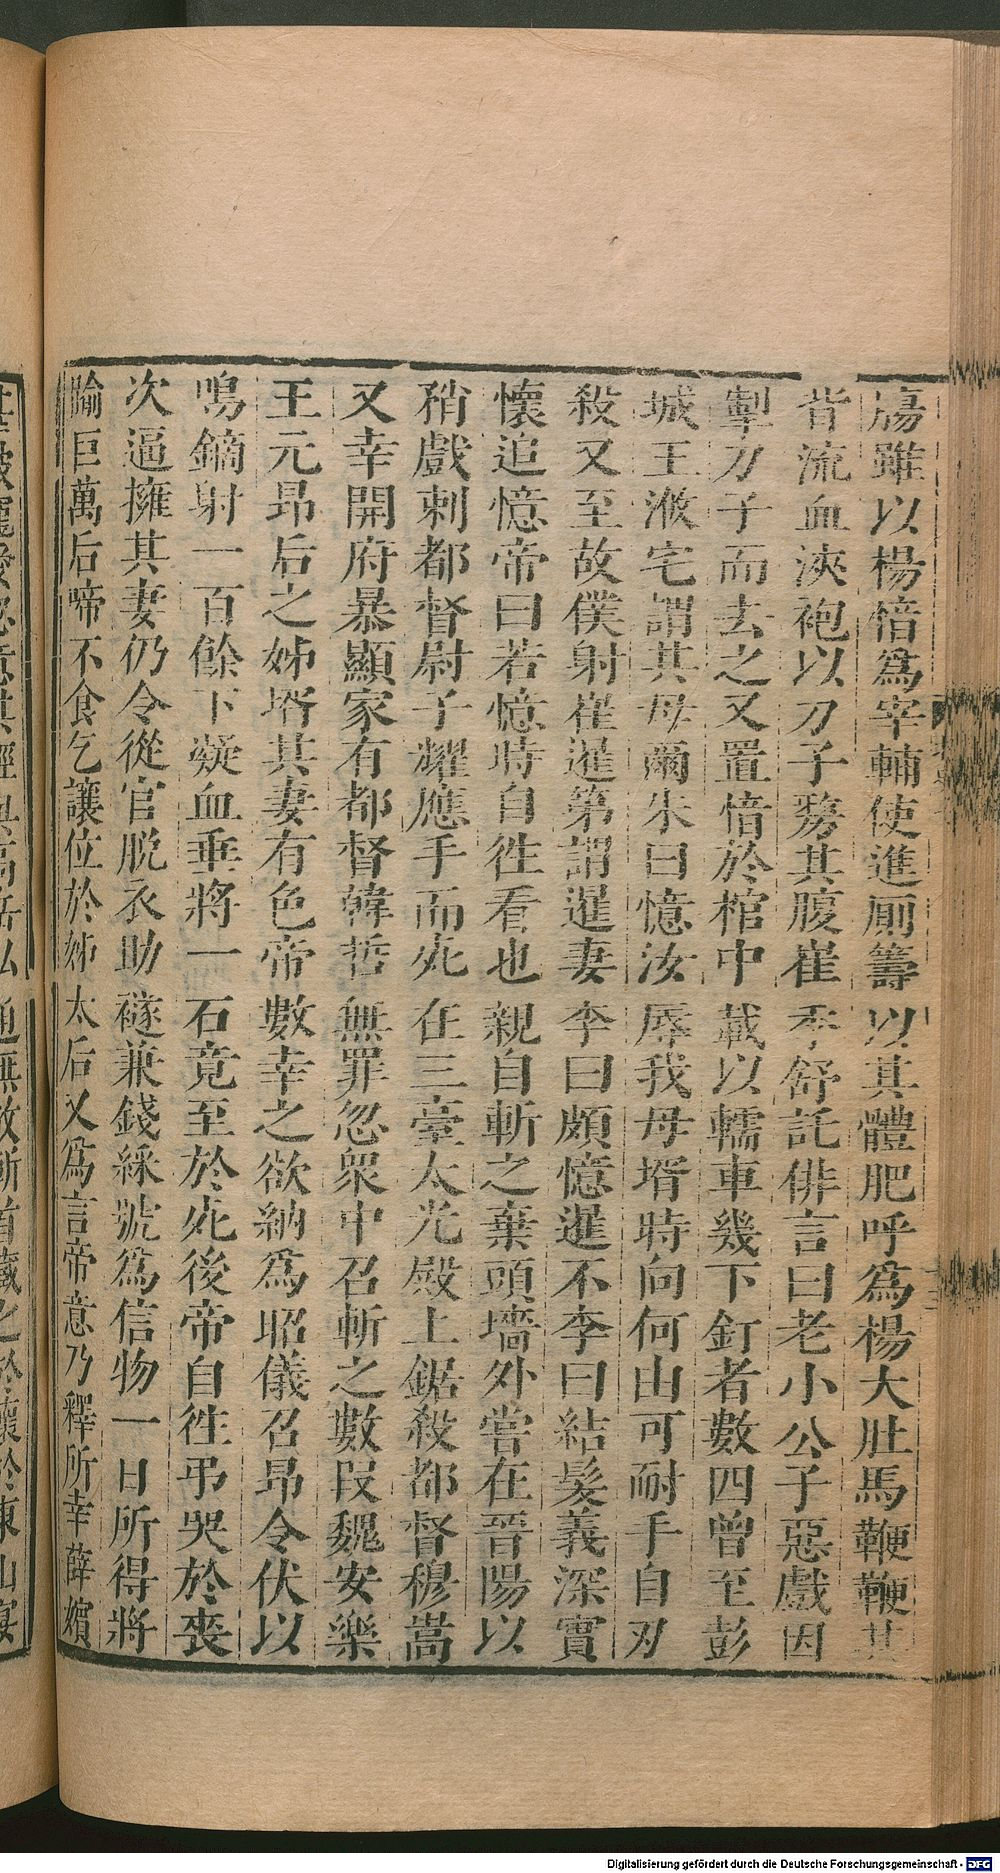 瘍雖以楊愔爲宰輔使進厠籌以其體肥呼爲楊大肚馬鞭鞭其
背流血浹袍以刀子剺其腹崔季舒託俳言曰老小公子惡戲因
掣刀子而去之又置愔於棺中載以轜車幾下釘者數四曾至彭
城王浟宅謂其母爾朱曰憶汝辱我母壻時向何由可耐手自刃
殺又至故僕射崔暹第謂暹妻李曰頗憶暹不李曰結髮義深實
懷追憶帝曰若憶時自徃看也親自斬之棄頭墻外嘗在晉陽以
矟戲刺都督尉子耀應手而死在三臺太光殿上鋸殺都督穆嵩
又幸開府暴顯家有都督韓哲無罪忽衆中召斬之數段魏安樂
王元昂后之姊壻其妻有色帝數幸之欲納爲昭儀召昂令伏以
鳴鏑射一百餘下凝血垂將一石竟至於死後帝自徃弔哭於喪
次逼擁其妻仍令從官脫衣助襚兼錢綵號爲信物一日所得將
踰巨萬后啼不食乞讓位於姊太后又爲言帝意乃釋所幸薛嬪
甚被寵愛忽意其經與高岳私通無故斬首藏之於懷於東山宴
Digitalisierung gefördert durch die Deutsche Forschungsgemeinschaft - DFG